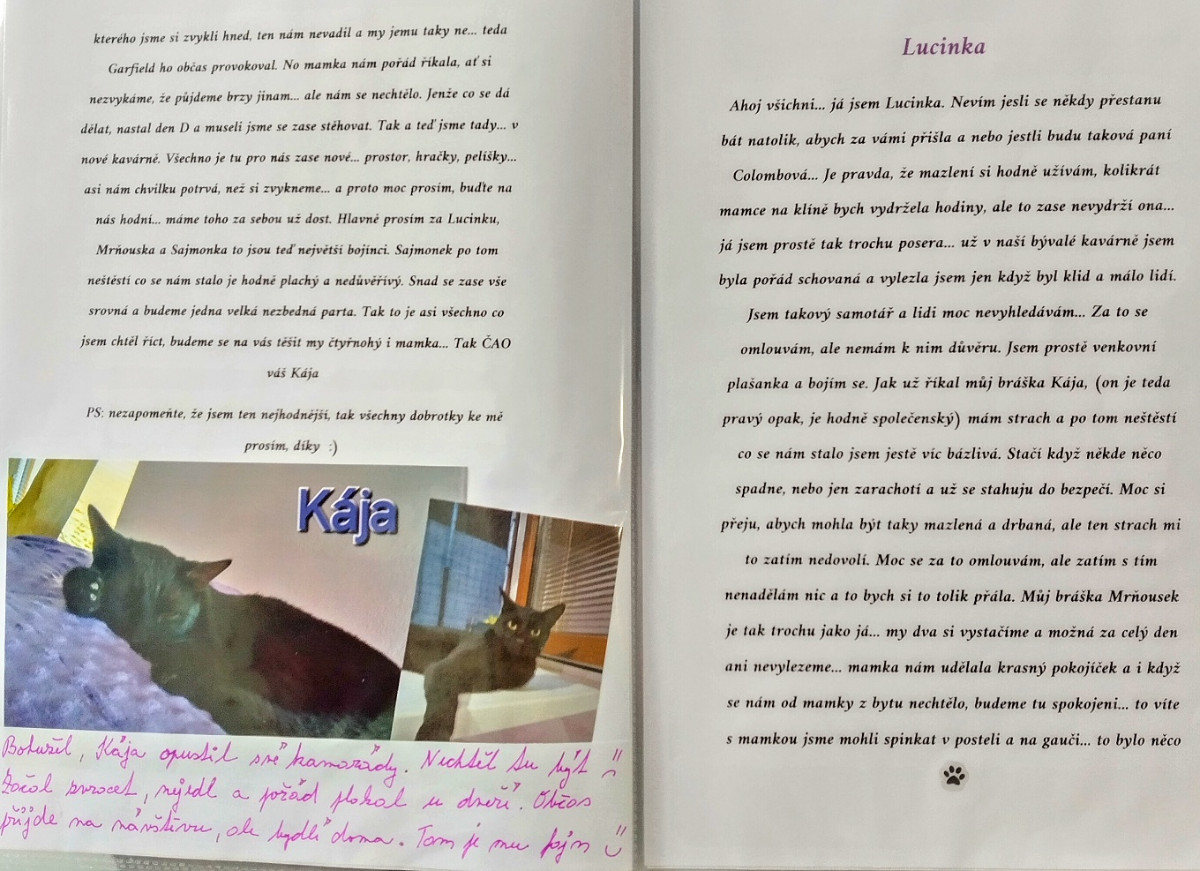 kterého jsme si zvykli hned, ten nám nevadil a my jemu taky ne... teda
Garfield ho občas provokoval. No mamka nám pořád říkala, ať si
nezvykáme, že půjdeme brzy jinam... ale nám se nechtělo. Jenže co se dá
dělat, nastal den D a museli jsme se zase stěhovat. Tak a teď jsme tady... v
nové kavárně. Všechno je tu pro nás zase nové... prostor, hračky, pelíšky...
asi nám chvilku potrvá, než si zvykneme... a proto moc prosím, buďte na
nás hodní... máme toho za sebou už dost. Hlavně prosím za Lucinku,
Mrňouska a Sajmonka to jsou teď největší bojínci. Sajmonek po tom
neštěstí co se nám stalo je hodně plachý a nedůvěřivý. Snad se zase vše
srovná a budeme jedna velká nezbedná parta. Tak to je asi všechno co
jsem chtěl říct, budeme se na vás těšit my čtyřnohý i mamka... Tak ČAO
váš Kája
PS: nezapomeňte, že jsem ten nejhodnější, tak všechny dobrotky ke mě
prosím, díky :)
Kája
Bohužel, Kája opustil své kamarády. Nechtěl tu být
Začal zvracet, nejedl a pořád plakal u dveří. Občas
přijde na návštěvu, ale bydlí doma. Tam je mu fajn
Lucinka
Ahoj všichni... já jsem Lucinka. Nevím jesli se někdy přestanu
bát natolik, abych za vámi přišla a nebo jestli budu taková paní
Colombová... Je pravda, že mazlení si hodně užívám, kolikrát
mamce na klíně bych vydržela hodiny, ale to zase nevydrží ona...
já jsem prostě tak trochu posera... už v naší bývalé kavárně jsem
byla pořád schovaná a vylezla jsem jen když byl klid a málo lidí.
Jsem takový samotář a lidi moc nevyhledávám... Za to se
omlouvám, ale nemám k nim důvěru. Jsem prostě venkovní
plašanka a bojím se. Jak už říkal můj bráška Kája, (on je teda
pravý opak, je hodně společenský) mám strach a po tom neštěstí
co se nám stalo jsem jestě víc bázlivá. Stačí když někde něco
spadne, nebo jen zarachotí a už se stahuju do bezpečí. Moc si
přeju, abych mohla být taky mazlená a drbaná, ale ten strach mi
to zatím nedovolí. Moc se za to omlouvám, ale zatím s tím
nenadělám nic a to bych si to tolik přála. Můj bráška Mrňousek
je tak trochu jako já... my dva si vystačíme a možná za celý den
ani nevylezeme... mamka nám udělala krasný pokojíček a i když
se nám od mamky z bytu nechtělo, budeme tu spokojeni... to víte
s mamkou jsme mohli spinkat v posteli a na gauči... to bylo něco